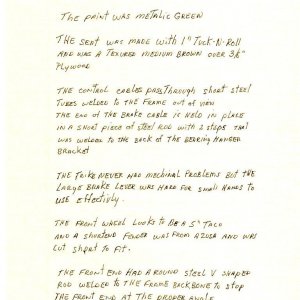 THE PAINT WAS METALIC GREEN
THE SEAT WAS MADE WITH 1" TUCK-N-ROLL
AND WAS A TEXURED MEDIUM BROWN OVER 3/8"
PLYWOOD
THE CONTROL CABLES PASS THROUGH SHORT STEEL
TUBES WELDED TO THE FRAME OUT OF VIEW
THE END OF THE BRAKE CABLE IS HELD IN PLACE
IN A SHORT PIECE OF STEEL ROD WITH 2 STOPS THAT
WAS WELDED TO THE BACK OF THE BERRING HANGER
BRACKET
THE TRIKE NEVER HAD MECHINAL PROBLEMS BUT THE
LARGE BRAKE LEVER WAS HARD FOR SMALL HANDS TO
USE EFFECTIVLY.
THE FRONT WHEEL LOOKS TO BE A 5" TACO
AND A SHORTEND FENDER WAS FROM AZUSA AND WAS
CUT SHORT TO FIT.
THE FRONT END HAD A ROUND STEEL V SHAPED
ROD WELDED TO THE FRAME BACKBONE TO STOP
THE FRONT END AT THE PROPER ANGLE